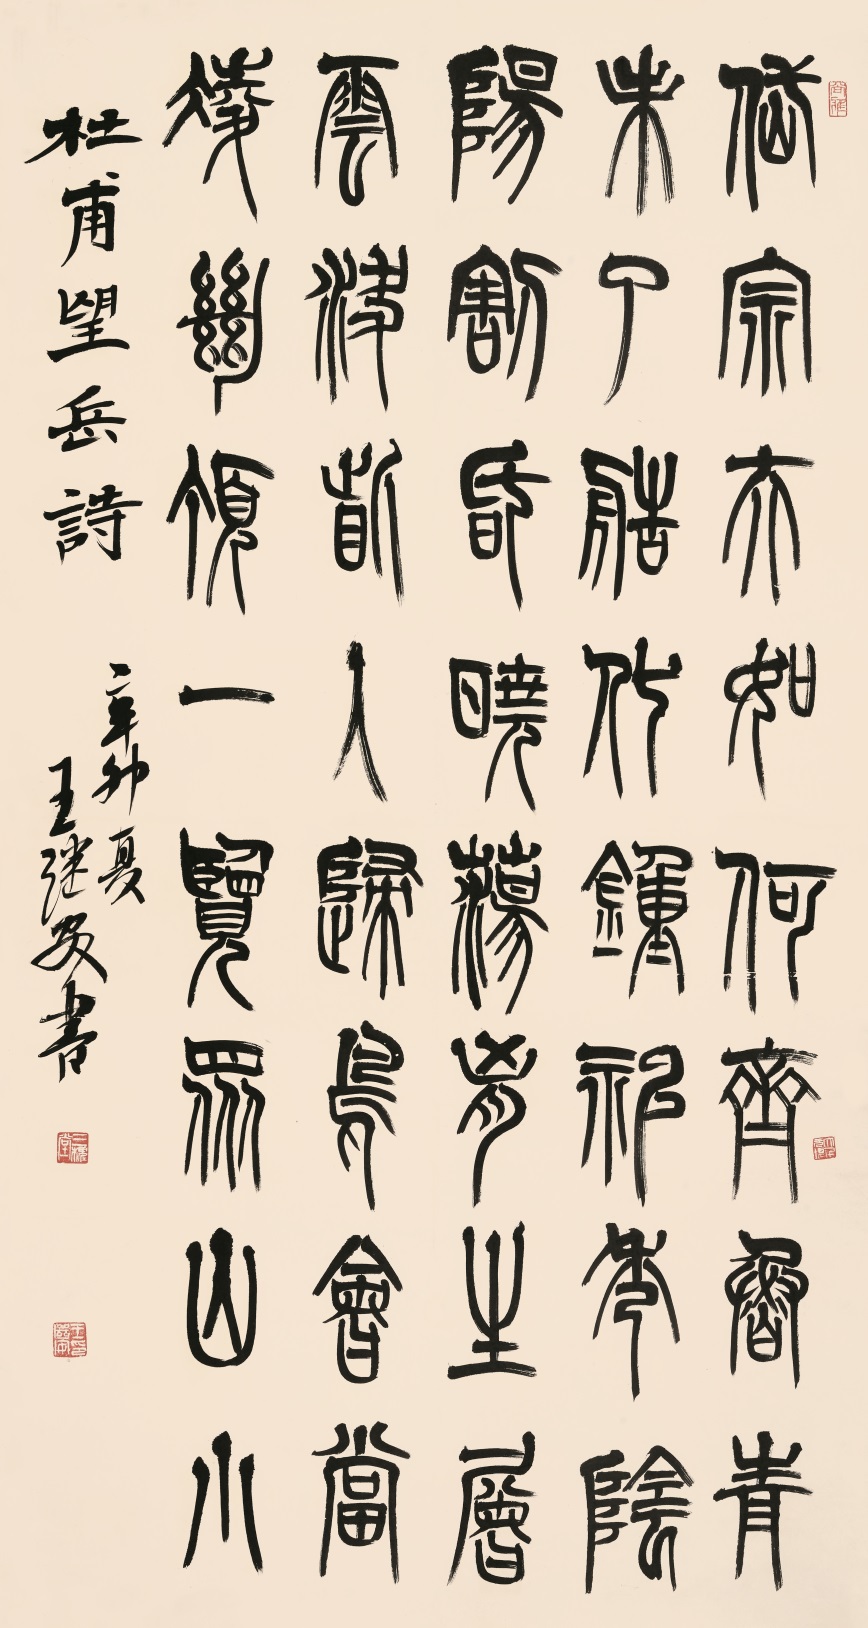 岱宗夫如何齊魯青
未了造化鍾神秀陰
陽割昏曉蕩胸生層
雲決眥入歸鳥會當
凌絕頂一覽眾山小
杜甫望岳詩
辛卯夏
王继安書